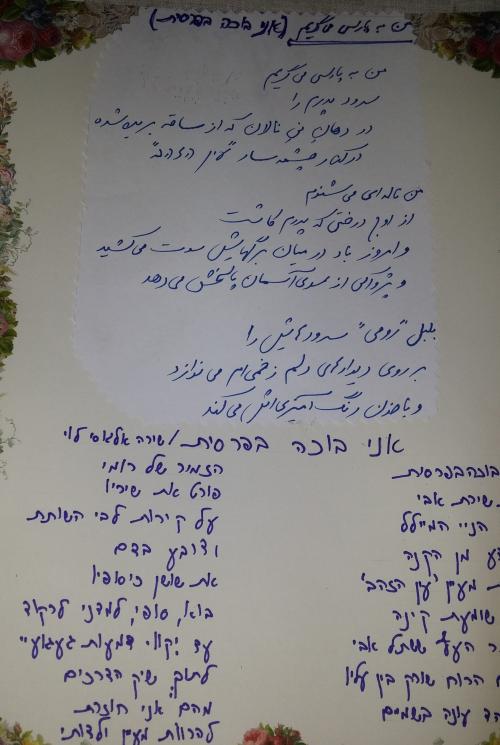 من به پارسی می‌گریم (אני בוכה בפרסית)
من به پارسی می‌گریم
سرود پدرم را
در دهان نیِ نالان که از ساقه بریده شده
در کنار چشمه سار "עין הזהב"
من ناله‌ای می‌شنوم
از اوج درختی که پدرم کاشت
و امروز باد در میان برگهایش سوت می‌کشید
و پژواکی از سوی آسمان پاسخش می‌دهد
بلبل "رومی" سرودهایش را
بر روی دیوارهای دلم زخمی‌ام می‌نوازد
و با خون رنگ آمیزی‌اش می‌کند
אני בוכה בפרסית / שירה אלגוסי לוי
בוכה בפרסית
שירת אבי
הניי המיילל
מן הקנה
מעין 'עין הזהב'
שומעת קינה
העץ ששתל אבי
הרוח שורק בין עליו
עונה בשמים
הזמיר של רומי
פורט את שיריו
על קירות לבי השותת
וצובע בדם
את שושן כיסופיו
בוא, סופי, למדני לרקוד
עד יקוו דמעות געגועיי
לתוך שיק הדרכים
מהם אני חוזרת
להרוות מעין ילדותי